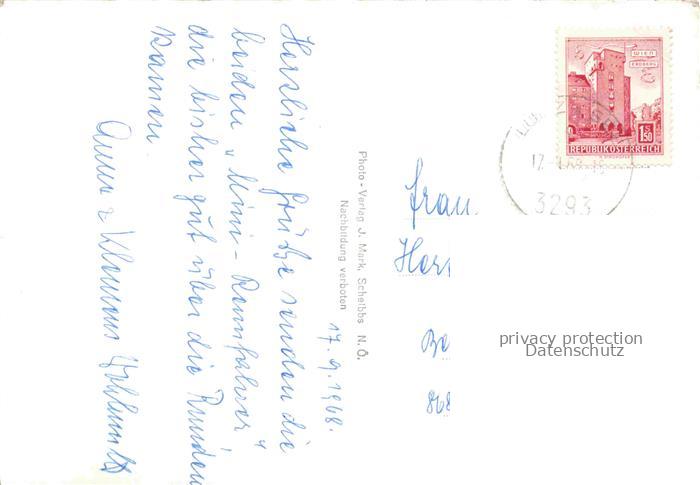 17. 9. 1968.
Herzliche Grüße senden die
beiden „Mini-Rennfahrer“
die bisher gut über die Runden
kamen.
Anna & Klemens
Photo-Verlag J. Mark, Scheibbs N. Ö.
Nachbildung verboten
WIEN
ERDBERG
1.50
REPUBLIK ÖSTERREICH
3293
Frau
privacy protection
Datenschutz